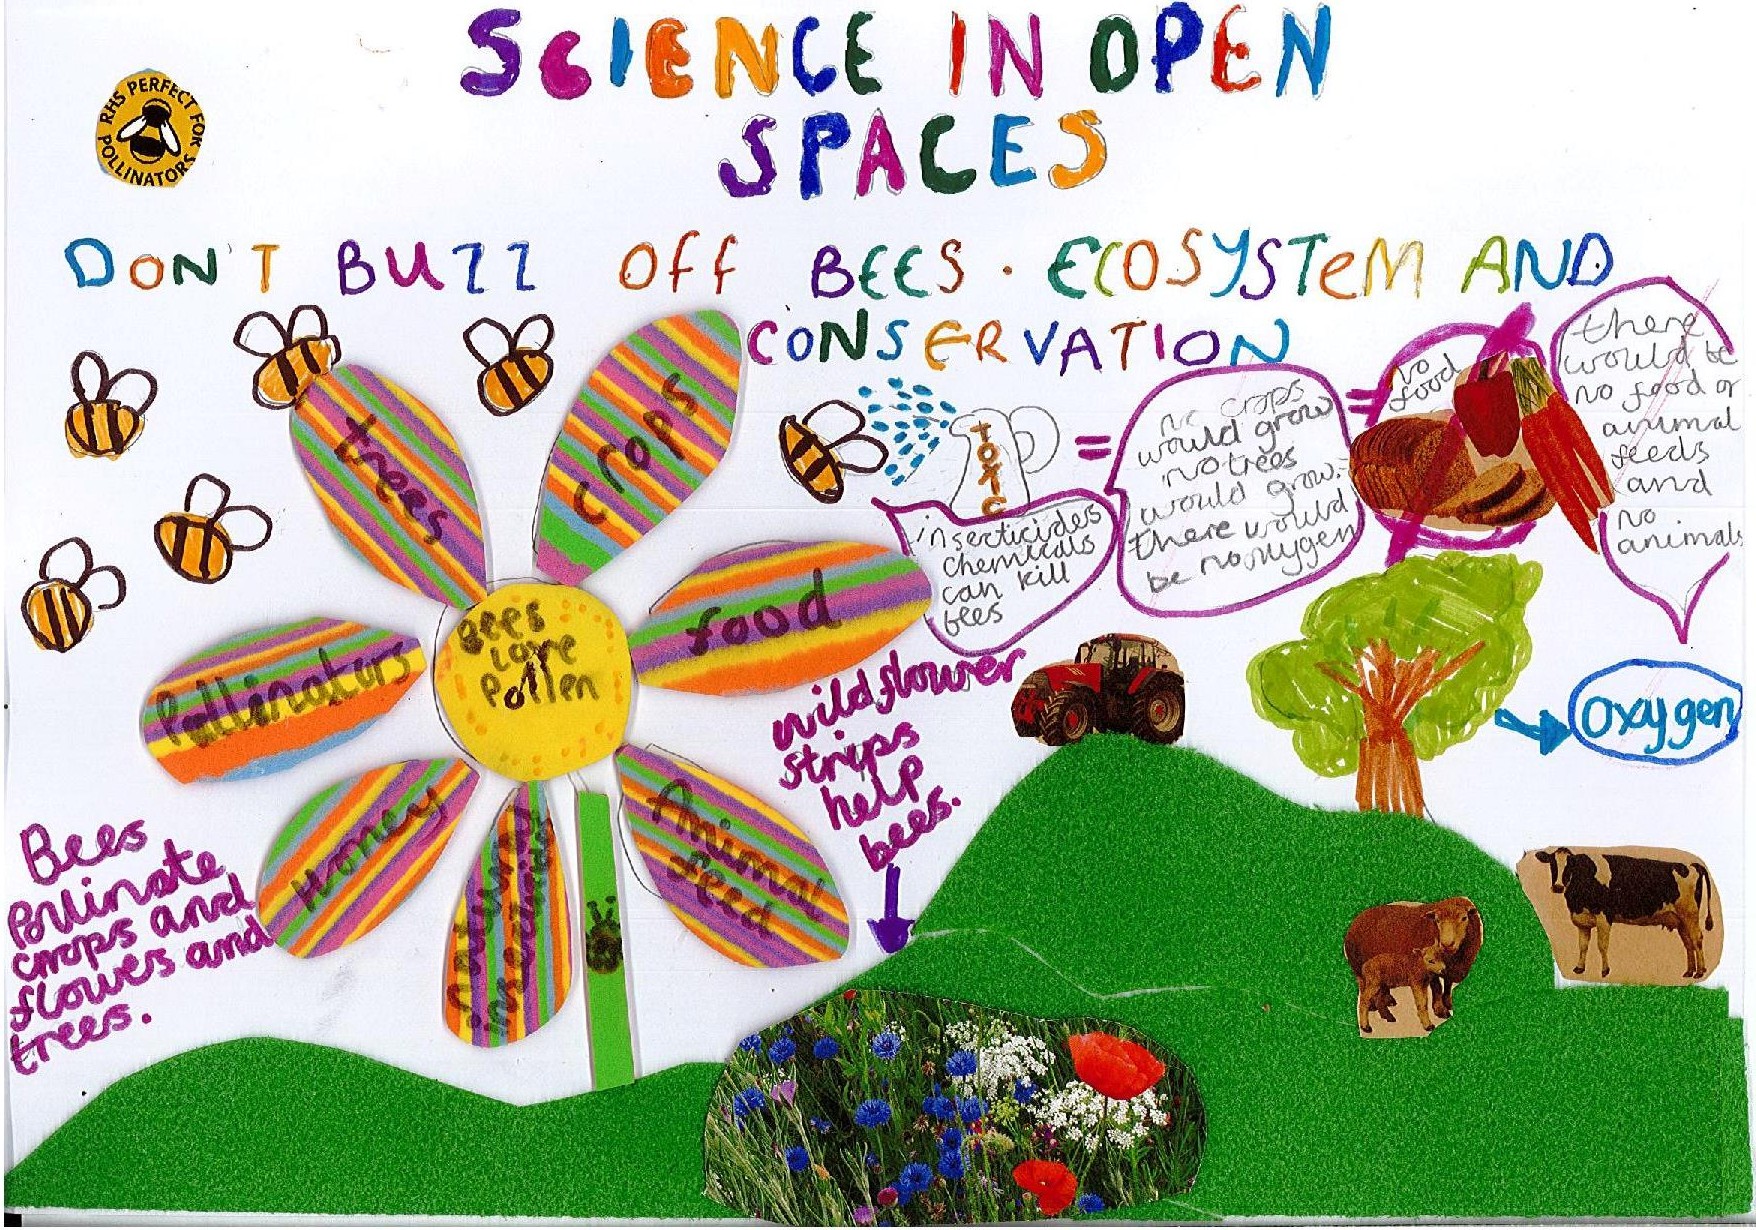 SCIENCE IN OPEN
SPACES
RHS PERFECT FOR
POLLINATORS
DON'T BUZZ OFF BEES. ECOSYSTEM AND
CONSERVATION
trees
crops
food
Pollinators
Bees
Love
Pollen
Honey
Animal
feed
TOXIC
=
insecticides
chemicals
can kill
bees
no crops
would grow
no trees
would grow.
there would
be no oxygen
=
no
food
there
would be
no food or
animal
feeds
and
no
animals
oxygen
wildflower
strips
help
bees.
Bees
pollinate
crops and
flowers and
trees.